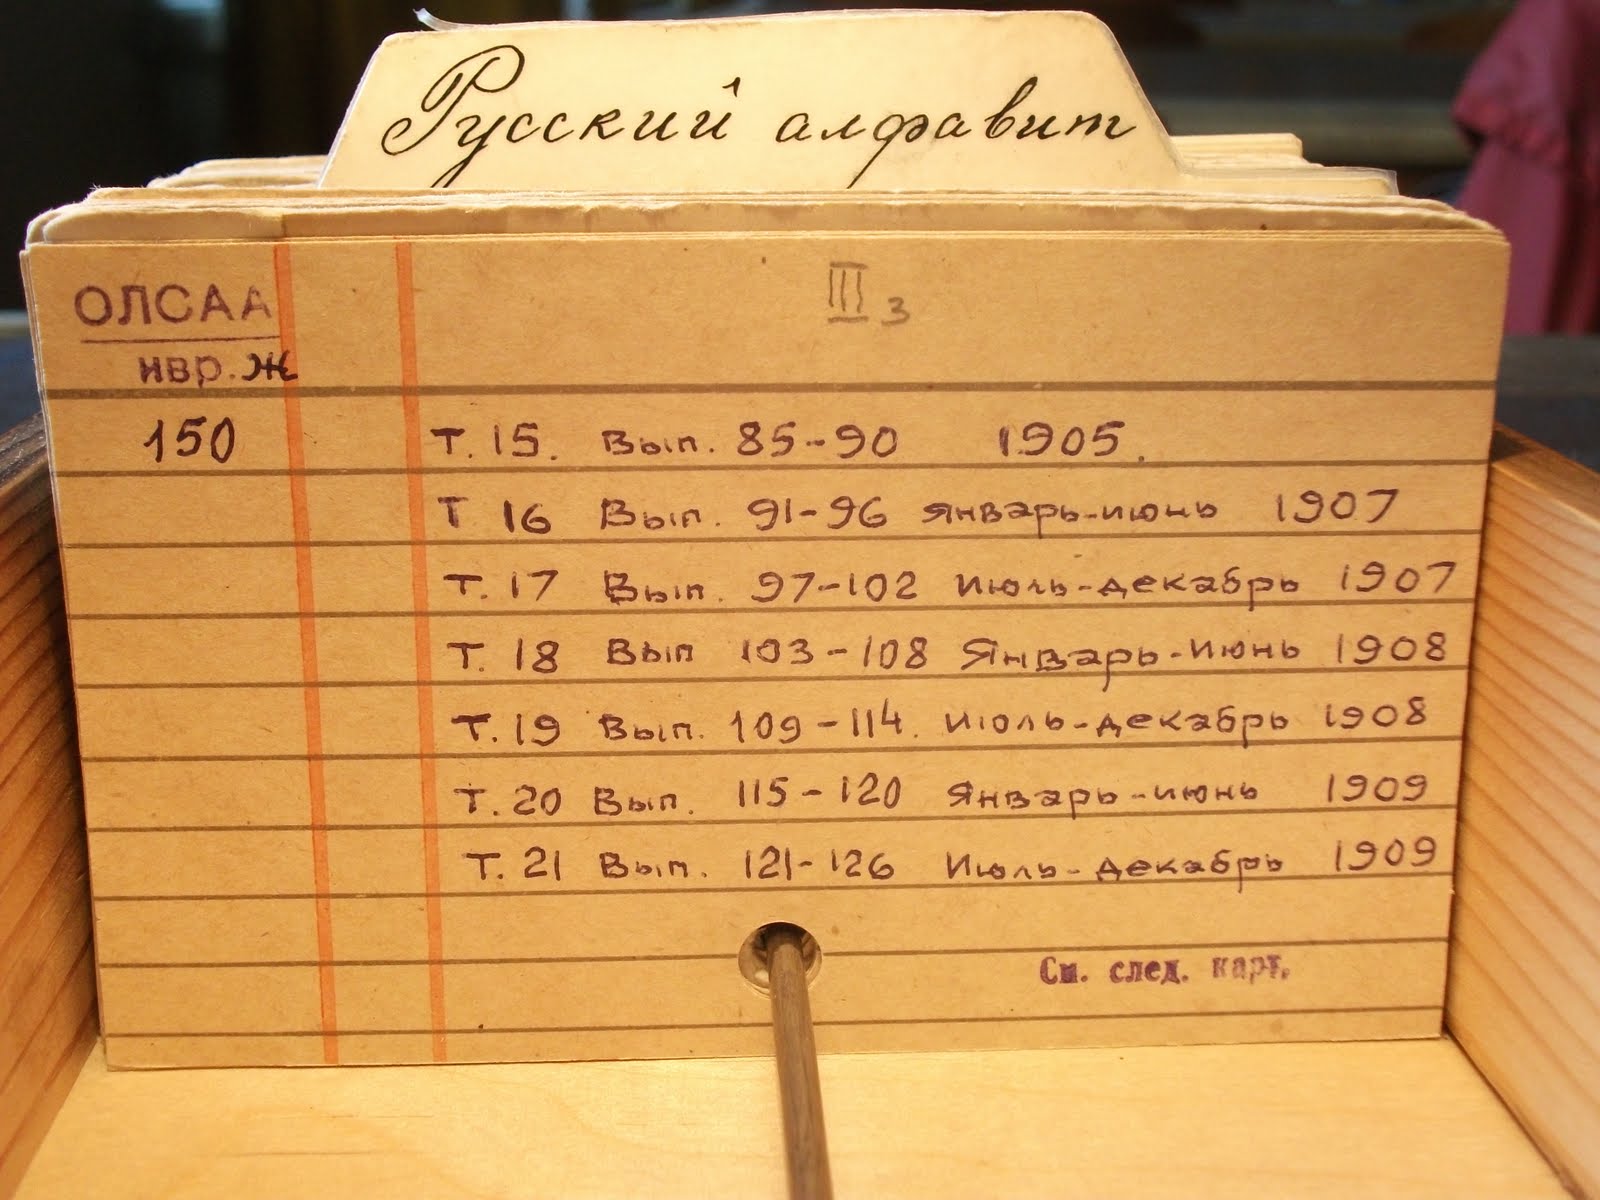 Русский алфавит
III 3
ОЛСАА
нвр. Ж
150
Т. 15. Вып. 85-90 1905.
Т 16 Вып. 91-96 Январь-июнь 1907
Т. 17 Вып. 97-102 Июль-декабрь 1907
Т. 18 Вып 103-108 Январь-июнь 1908
Т. 19 Вып. 109-114. Июль-декабрь 1908
Т. 20 Вып. 115-120 Январь-июнь 1909
Т. 21 Вып. 121-126 Июль-декабрь 1909
См. след. карт.